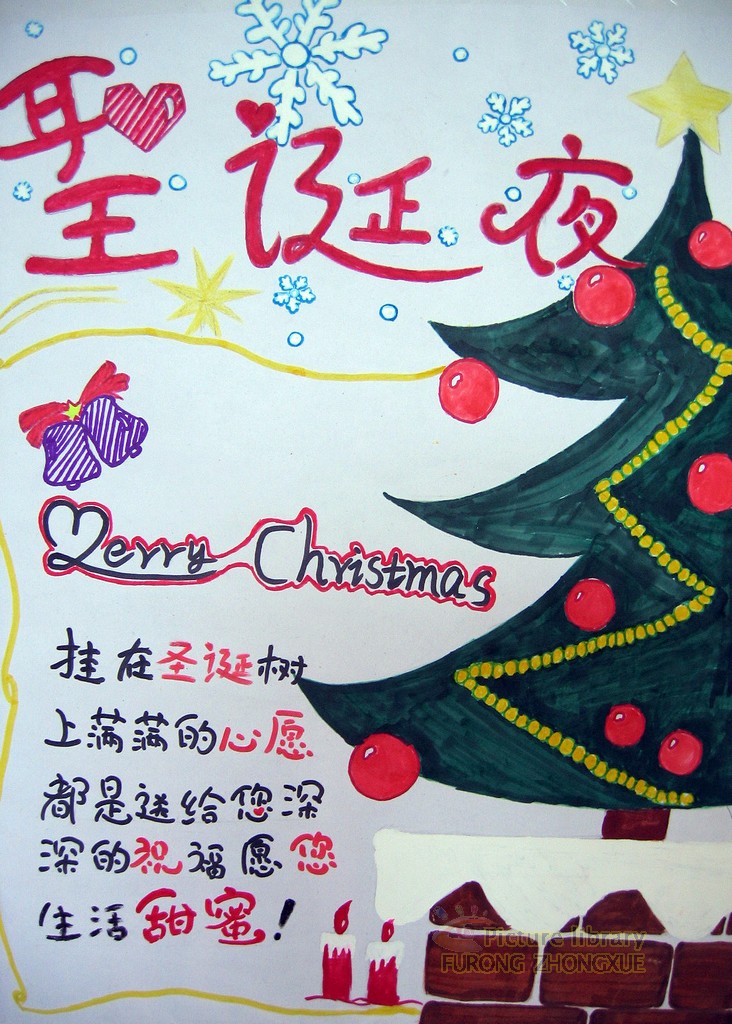 聖誕夜
Merry Christmas
挂在圣诞树
上满满的心愿
都是送给您深
深的祝福愿您
生活甜蜜!
Picture library
FURONG ZHONGXUE